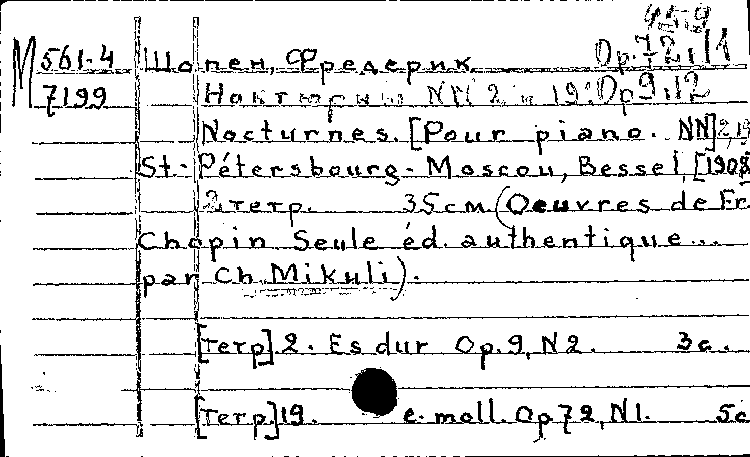 459
М 561-4 Шопен, Фредерик Op. 72,11
7199 Ноктюрны NN 2 и 19. Op 9,12
Nocturnes. [Pour piano. NN] 2,19
St-Pétersbourg-Moscou, Bessel, [1908
2 тетр. 35см (Oeuvres de Fr
Chopin Seule éd. authentique...
par Ch. Mikuli).
[тетр]. 2. Es dur Op. 9, N 2. 3с.
[Тетр.] 19. e. moll. Op 72, N1. 5с